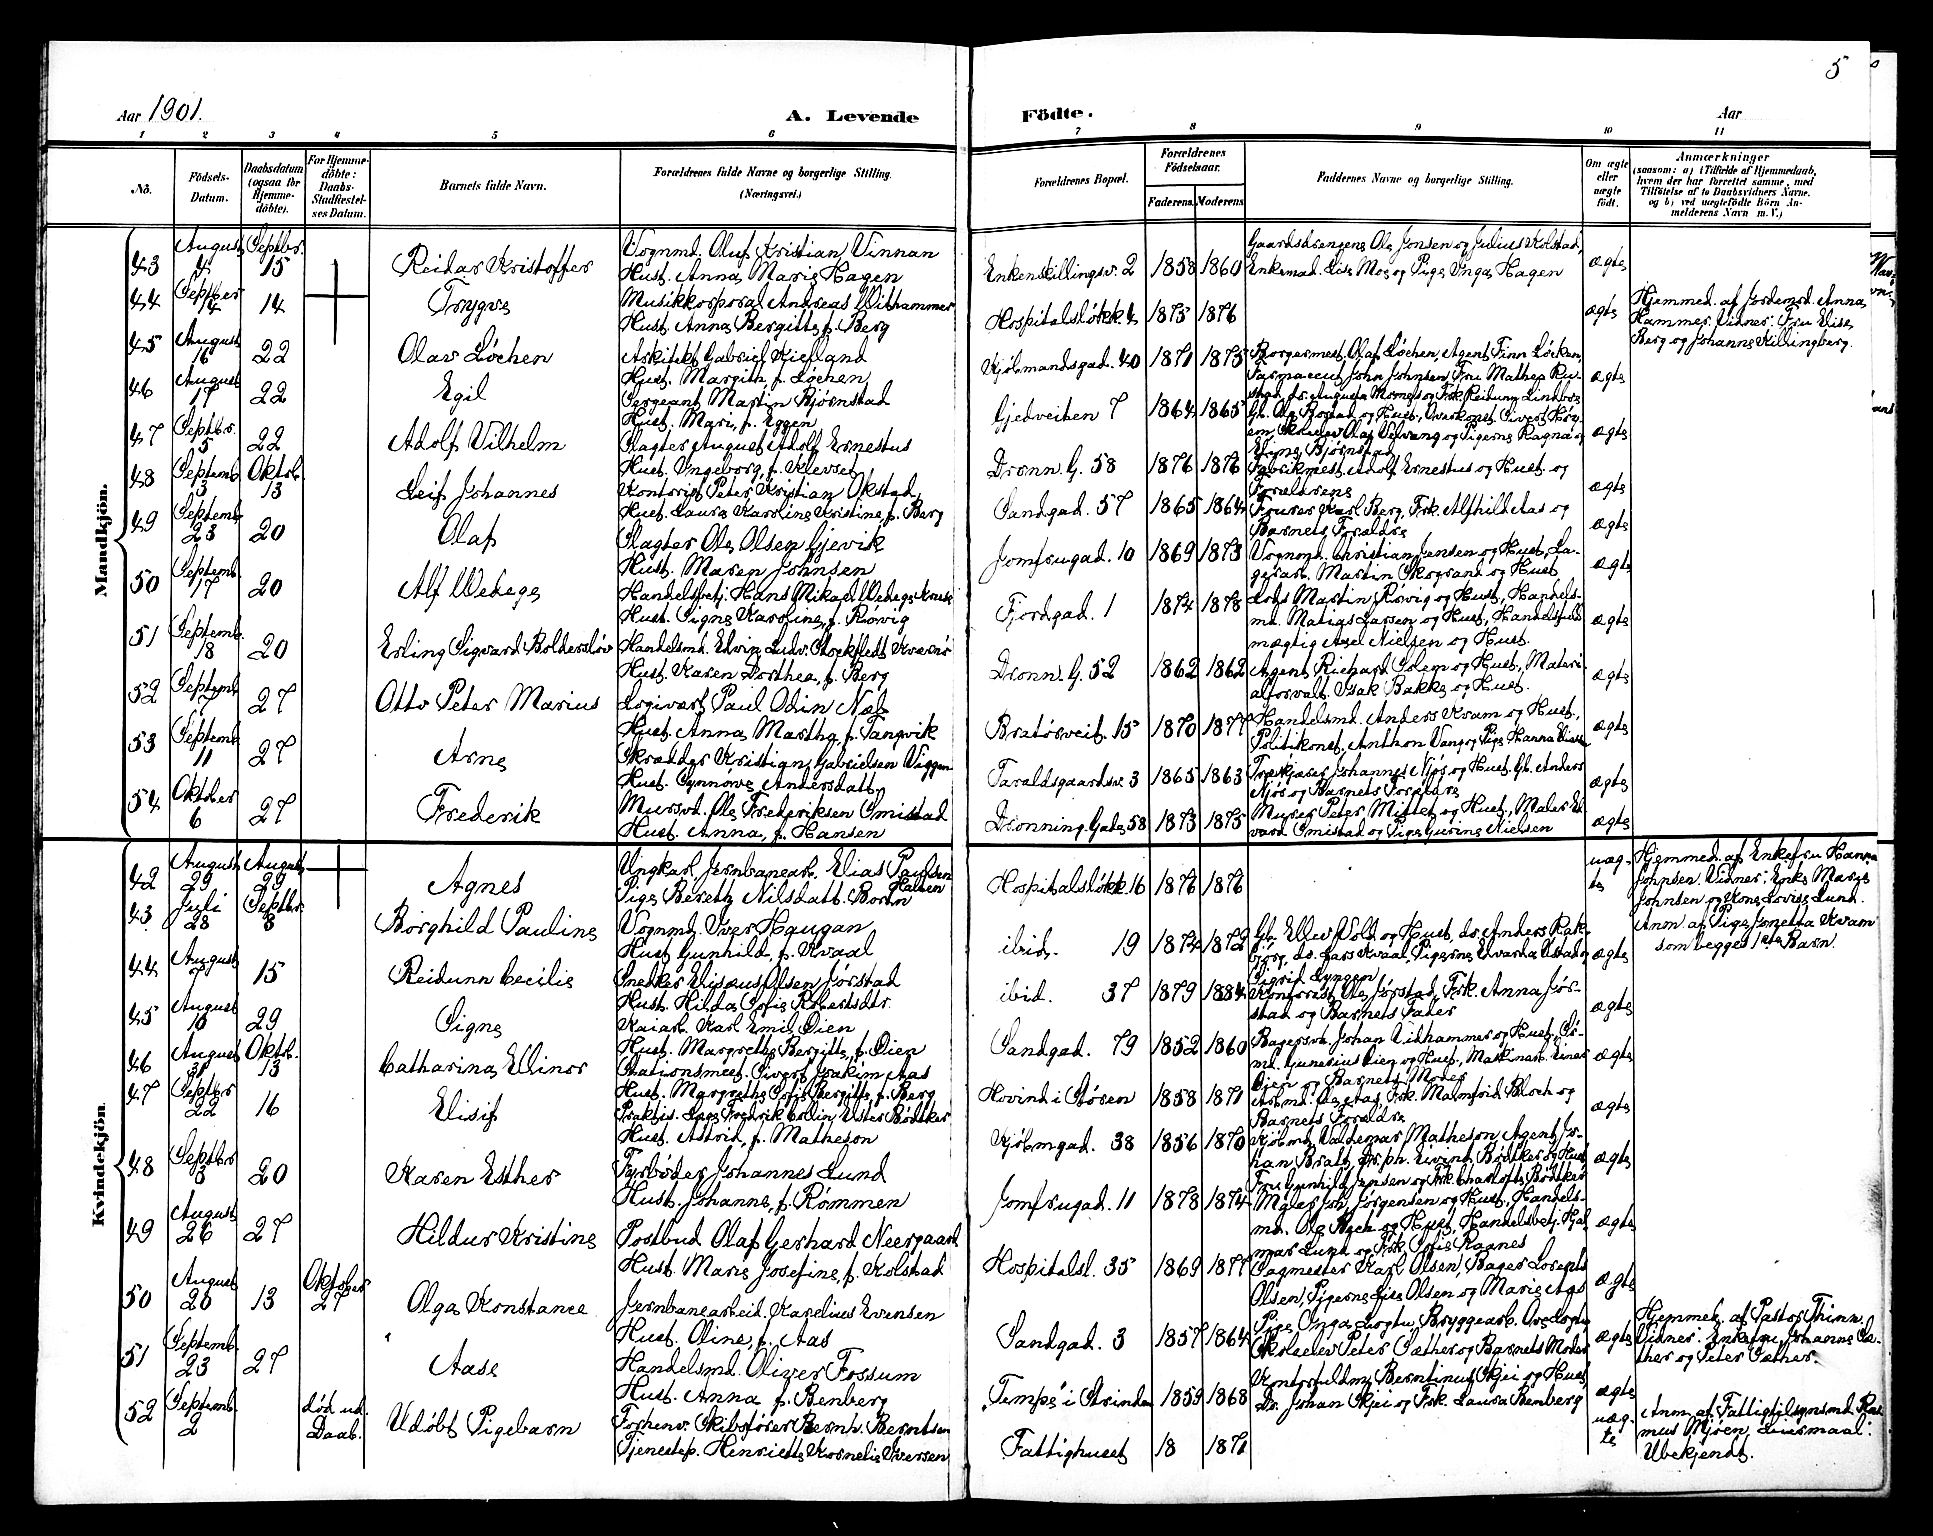 5
Aar 1901.
A. Levende Födte.
Aar
1 2 3 4 5 6 7 8 9 10 11
No.
Födsels-Datum.
Daabsdatum (ogsaa for Hjemme-döbte).
For Hjemme-döbte: Daabs-Stadfæstel-ses Datum.
Barnets fulde Navn.
Forældrenes fulde Navne og borgerlige Stilling. (Næringsvei.)
Forældrenes Bopæl.
Forældrenes Födselsaar.
Faderens. Moderens.
Faddernes Navne og borgerlige Stilling.
Om ægte eller uægte födt.
Anmærkninger
(saasom: a) i Tilfælde af Hjemmedaab,
hvem der har forrettet samme, med
Tilföielse af to Daabsvidners Navne.
og b) ved uægtefödte Börn An-
melderens Navn m. V.)
Mandkjön.
43 August 4 Septbr. 15 Reidar Kristoffer Vognmd. Oluf Kristian Vinnan
Hust. Anna Marie Hagen
Enkenskillingsv. 2 1858 1860
Gaardsdrengene Ole Jonsen og Julius Kolstad,
Enkemad. Lise Moe og Pige Inga Hagen
ægte
44 Septber 4 14 Trygve Musikkorporal Andreas Withammer
Hust. Anna Bergitte, f. Berg
Hospitalsløkk. 4 1873 1876 ægte
Hjemmed. af Jordemd. Anna
Hammer. Vidner: Fru Elise
Berg og Johanne Killingberg.
45 August 16 22 Olav Løchen Arkitekt Gabriel Kielland
Hust. Margith, f. Løchen
Kjøbmandsgad. 40 1871 1875
Borgermest. Olaf Løchen, Agent Finn Løchen,
Farmaceut John Johnsen, Fru Mathea
ægte
46 August 17 22 Egil Sergeant Martin Bjørnstad
Hust. Mari, f. Eggen
Gjedveiten 7 1864 1865
ægte
47 Septbr. 5 22 Adolf Vilhelm Slagter August Adolf Ernestus
Hust. Ingeborg, f. Klevset
Dronn. G. 58 1876 1876
Fabrikmest. Adolf Ernestus og Hust. og
Forældrene
ægte
48 Septemb. 3 Oktb. 13 Leif Johannes Kontorist Peter Kristian Okstad
Hust. Laura Karoline Kristine, f. Berg
Sandgad. 57 1865 1864
Fourer Karl Berg, Frk. Alfhild Aas og
Barnets Forældre
ægte
49 Septemb. 23 20 Olaf Slagter Ole Olsen Gjevik
Hust. Maren Johnsen
Jomfrugad. 10 1869 1873
Vognmd. Christian Jensen og Hust. La-
gerarb. Martin Skogrand og Hust.
ægte
50 Septemb. 17 20 Alf Wedege Handelsbetj. Hans Mikael Wedege Kruse
Hust. Signe Karoline, f. Rövig
Fjordgad. 1 1874 1878
Lods Martin Rövig og Hust., Handels-
md. Matias Larsen og Hust., Handelsfuld
mægtig Axel Nielsen og Hust.
ægte
51 Septemb. 18 20 Erling Sigvard Bolderslöv Handelsmd. Edvin Ludv. Stockfledt Kvernö
Hust. Karen Dorthea, f. Berg
Dronn. G. 52 1862 1862
Agent Richard Solem og Hust., Materi-
alforvalt. Isak Bakke og Hust.
ægte
52 Septemb. 7 27 Otto Peter Marius Logivært Paul Odin Næs
Hust. Anna Martha, f. Tangvik
Bratörveit. 15 1870 1877
Handelsmd. Anders Kvam og Hust.,
Politikonst. Anthon Vang og Pige Hanna
ægte
53 Septemb. 11 27 Arne Skrædder Kristian Gabrielsen Viggen
Hust. Synnöve Andersdatt.
Taraldsgaardsv. 3 1865 1863
Træskjærer Johannes Njös og Hust. Gb. Anders
Njös og Barnets Forældre
ægte
54 Oktober 6 27 Frederik Mursvd. Ole Frederiksen Smistad
Hust. Anna, f. Hansen
Dronning. Gade 58 1873 1875
Murer Peter Mittet og Hust., Maler Ed
vard Smistad og Pige Gurine Nielsen
ægte
Kvindekjön.
42 August 29 August 29 Agnes Ungkarl, Jernbanearb. Elias Paulsen
Pige Beret Nilsdatt.
Hospitalsløkk. 16 1876 1876 uæg-
te
Hjemmed. af Enkefru Hanna
Johnsen. Vidner: Enke Marie
Johnsen og Kone Lovise Lund.
Anm. af Pige Jonetta Kvam
som begges 1ste Barn.
43 Juli 28 Septbr. 8 Borghild Pauline Vognmd. Iver Haugan
Hust. Gunhild, f. Kvaal
ibid. 19 1874 1872
Gb. Ellev Vold og Hust., do. Anders
Sigrid Lyngen
ægte
44 August 7 15 Reidunn Cecilie Snedker Elisæus Olsen Jörstad
Hust. Hilda Sofie Robertsdtr.
ibid. 37 1879 1884
Kontorist Ole Jörstad, Frk. Anna Jör-
stad og Barnets Fader
ægte
45 August 10 29 Signe Kaiarb. Karl Emil Öien
Hust. Margrethe Bergitte, f. Öien
Sandgad. 79 1852 1860
Bagersv. Johan Vidhammer og Hust.,
Öien og Barnets Moder
ægte
46 August 31 Oktb. 13 Catharina Ellinor Stationsmest. Sivert Joakim Aas
Hust. Margrethe Sofie Bergitte, f. Berg
Hovind i Stören 1858 1871
Frk. Malmfrid Bloch og
Barnets Forældre
ægte
47 Septbr 22 16 Elisif Praktis. Læge Fredrik Colin Uster Bödtker
Hust. Astrid, f. Matheson
Kjöbmgad. 38 1856 1870
Kjöbmd. Valdemar Matheson, Agent Jo-
han Bratt, Dr. ph. Eivind Bödtker og Hust
Fru Gunhild Jensen og Frk. Charlotte Bödtker
ægte
48 Septbr 3 20 Karen Esther Fyrböder Johannes Lund
Hust. Johanne, f. Römmen
Jomfrugad. 11 1878 1874
Maler Joh. Jörgensen og Hust., Handels-
md. Ole Beck og Hust., Handelsbetj. Hjal
mar Lund og Frk. Sofie Raanes
ægte
49 August 26 27 Hildur Kristine Postbud Olaf Gerhard Neergaard
Hust. Marie Josefine, f. Kolstad
Hospitalsl. 35 1869 1877
Sagmester Karl Olsen, Bager Lorents
Olsen, Pigerne Lise Olsen og Marie Aas
ægte
50 August 20 13 Oktober 27 Olga Konstance Jernbanearbeid. Karelius Evensen
Hust. Oline, f. Aas
Sandgad. 3 1857 1864
Pige Inga Sogtu, Bryggearb. Ove Sogtu
Skoleelev Peter Sæther og Barnets Moder
ægte
Hjemmed. af Pastor Thinn.
Vidner: Enkefru Johanne Sæ-
ther og Peter Sæther.
51 Septemb. 23 27 Aase Handelsmd. Oliver Fossum
Hust. Anna f. Benberg
Tempe i Strinden 1859 1868
Kontorfuldm. Berntinus Skjei og Hust
Dr. Johan Skjei og Frk. Laura Bemberg
ægte
52 Septemb. 2 död ud. Daab. Udöbt Pigebarn Forhenv. Skibsförer Bernh. Berntsen
Tjenestep. Henriette Kornelie Iversen
Fattighuset 18 1871
uæg-
te
Anm. af Fattigtilsynsmd. Ras
mus Mjöen, Leiermaal:
Ubekjendt.